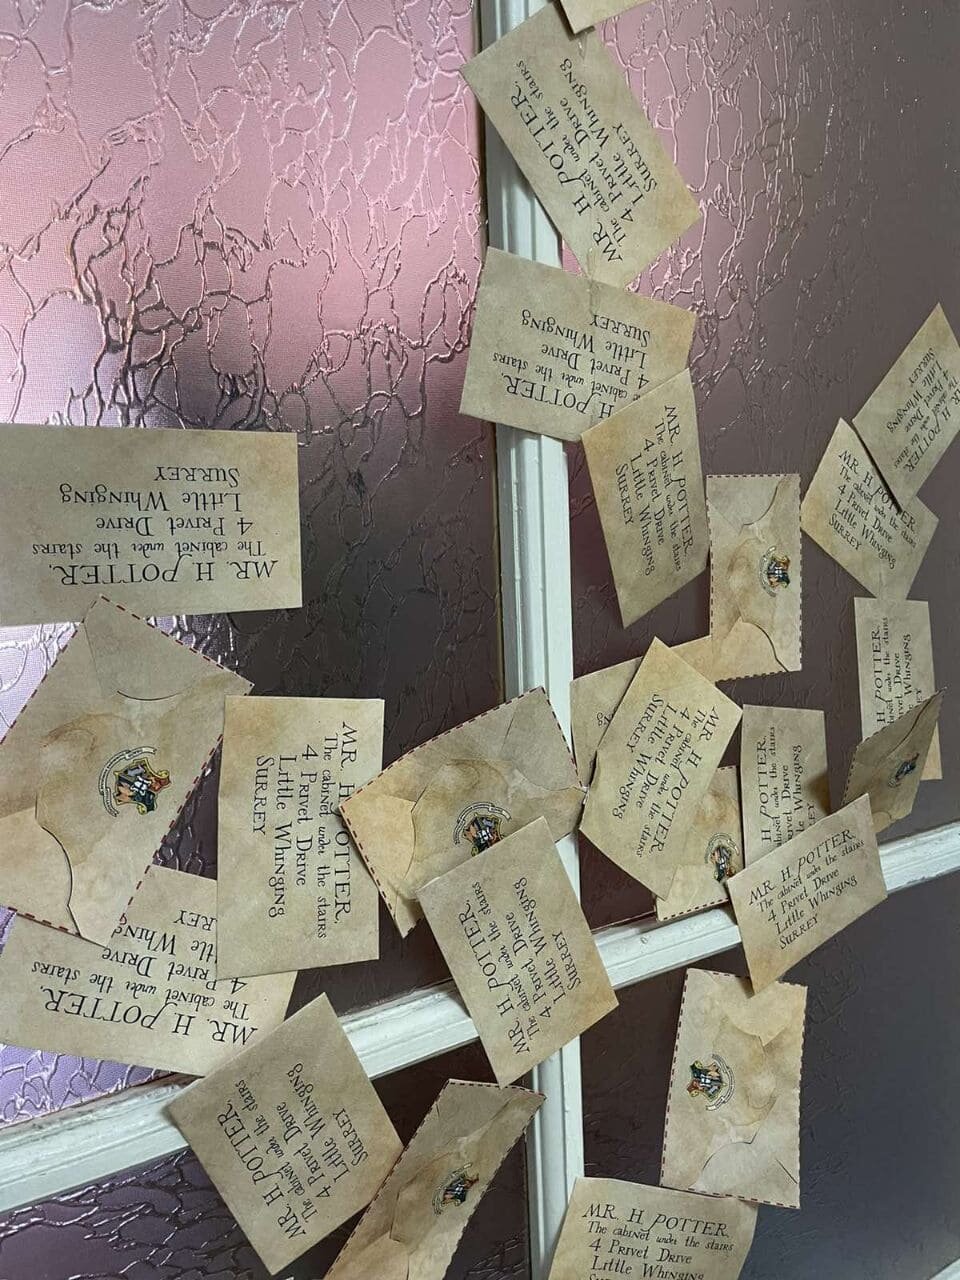 MR. H. POTTER,
The cabinet under the stairs
4 Privet Drive
Little Whinging
SURREY
H POTTER,
cabinet under the stairs
4 Privet Drive
Little Whinging
SURREY
H. POTTER,
under the stairs
Little Whinging
SURREY
MR. H POTTER,
The cabinet under the stairs
4 Privet Drive
Little Whinging
SURREY
MR. H POTTER,
The cabinet under the stairs
4 Privet Drive
Little Whinging
SURREY
MR. H. POTTER,
The cabinet under the stairs
4 Privet Drive
Little Whinging
SURREY
H POTTER,
under the stairs
Drive
Whinging
MR. H POTTER,
The cabinet under the stairs
4 Privet Drive
Little Whinging
SURREY
MR. H POTTER,
The cabinet under the stairs
4 Privet Drive
Little Whinging
SURREY
H POTTER,
under the stairs
Drive
Whinging
MR. H. POTTER,
The cabinet under the stairs
4 Privet Drive
Little Whinging
SURREY
MR. H. POTTER,
The cabinet under the stairs
4 Privet Drive
Little Whinging
SURREY
MR. H POTTER,
The cabinet under the stairs
4 Privet Drive
MR. H. POTTER,
The cabinet under the stairs
4 Privet Drive
Little Whinging
SURREY
MR. H POTTER,
The cabinet under the stairs
4 Privet Drive
Little Whinging